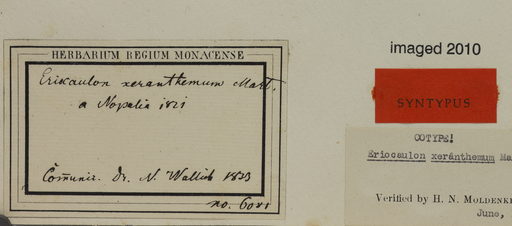 HERBARIUM REGIUM MONACENSE
Eriocaulon xeranthemum Mart.
a Nopalia 1821
Com̃unic. Dr. N. Wallich 1833
no.
imaged 2010
SYNTYPUS
COTYPE!
Eriocaulon xeranthemum Ma
Verified by H. N. MOLDENKE
June,